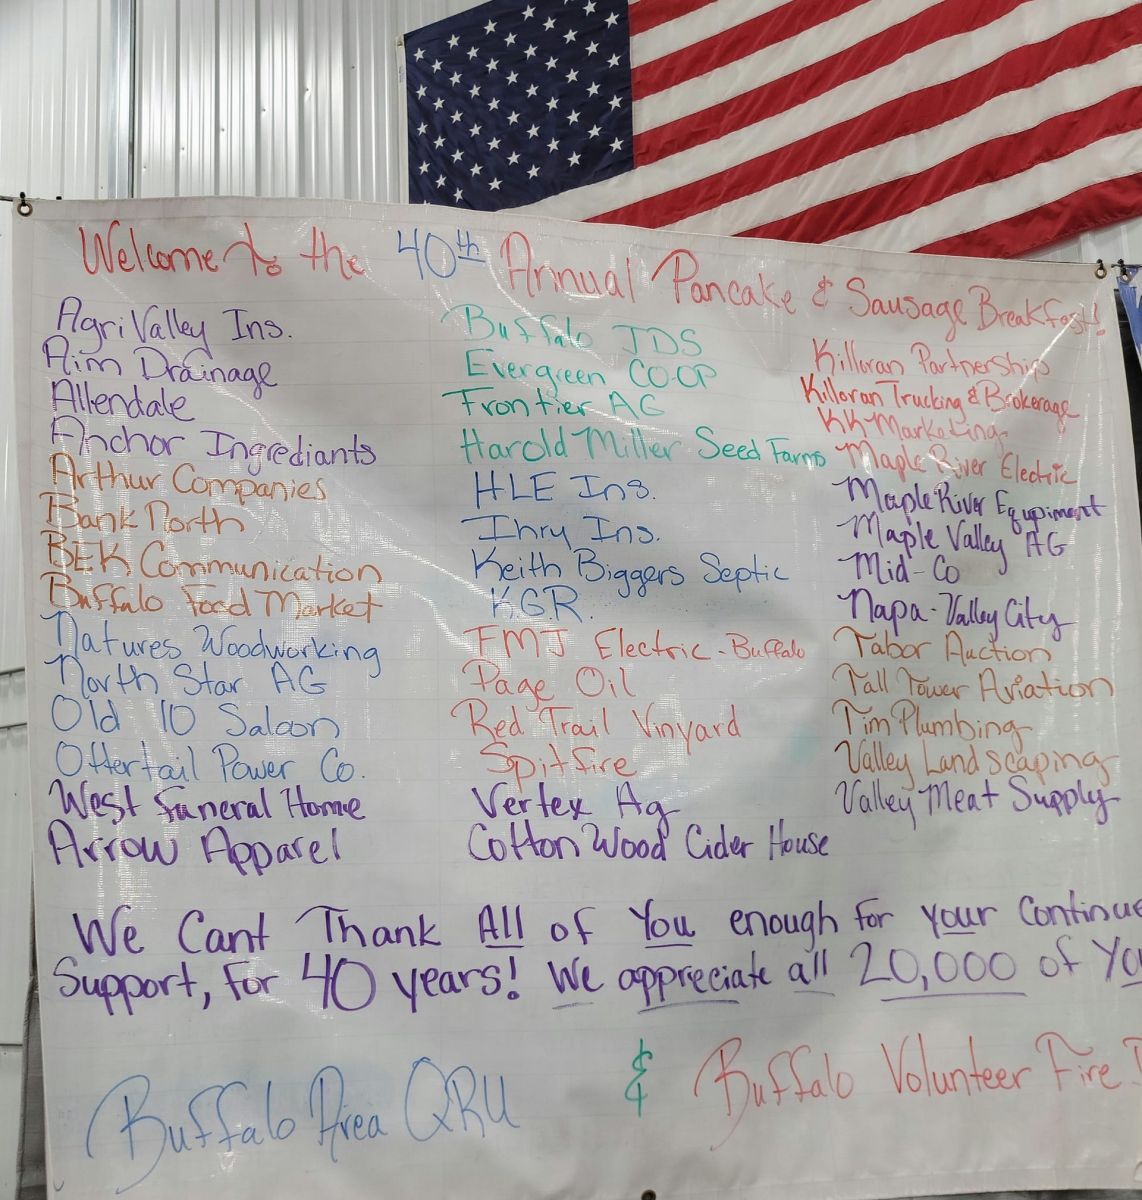 Welcome to the 40th Annual Pancake & Sausage Breakfast!
Agri Valley Ins.
Aim Drainage
Allendale
Anchor Ingrediants
Arthur Companies
Bank North
BEK Communication
Buffalo Food Market
Natures Woodworking
North Star AG
Old 10 Saloon
Ottertail Power Co.
West Funeral Home
Arrow Apparel
Buffalo JDS
Evergreen CO-OP
Frontier AG
Harold Miller Seed Farms
HLE Ins.
Ihry Ins.
Keith Biggers Septic
KGR.
FMJ Electric-Buffalo
Page Oil
Red Trail Vinyard
Spitfire
Vertex Ag
CottonWood Cider House
Killoran Partnership
Killoran Trucking & Brokerage
KK Marketing
Maple River Electric
Maple River Equpiment
Maple Valley AG
Mid-Co
Napa-Valley City
Tabor Auction
Tall Tower Aviation
Tim Plumbing
Valley Landscaping
Valley Meat Supply
We Cant Thank All of You enough for your Continue
Support, for 40 years! We appreciate all 20,000 of You
Buffalo Area QRU & Buffalo Volunteer Fire